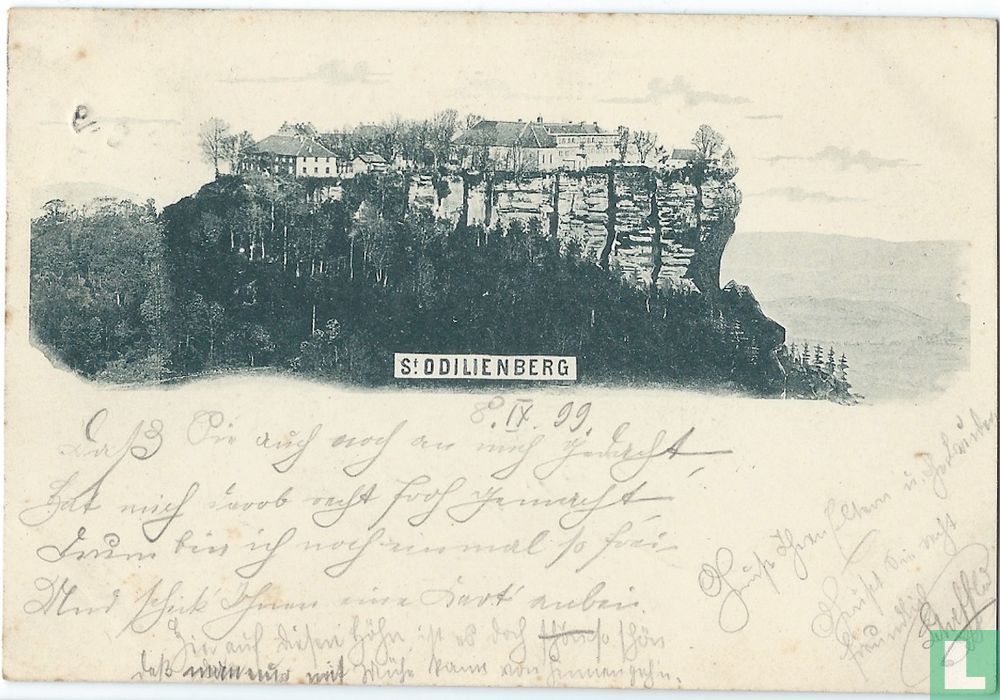 St ODILIENBERG
8. IX. 99.
Daß Sie auch noch an mich gedacht,
Hat mich darob recht froh gemacht
Drum bin ich noch einmal so frei
Und schick' Ihnen eine Kart' anbei.
Hier auf diesen Höhn ist es doch so schön
daß man nur mit Mühe kann von hinnen gehn.
Ihren Eltern u.
Sie recht
freundlich